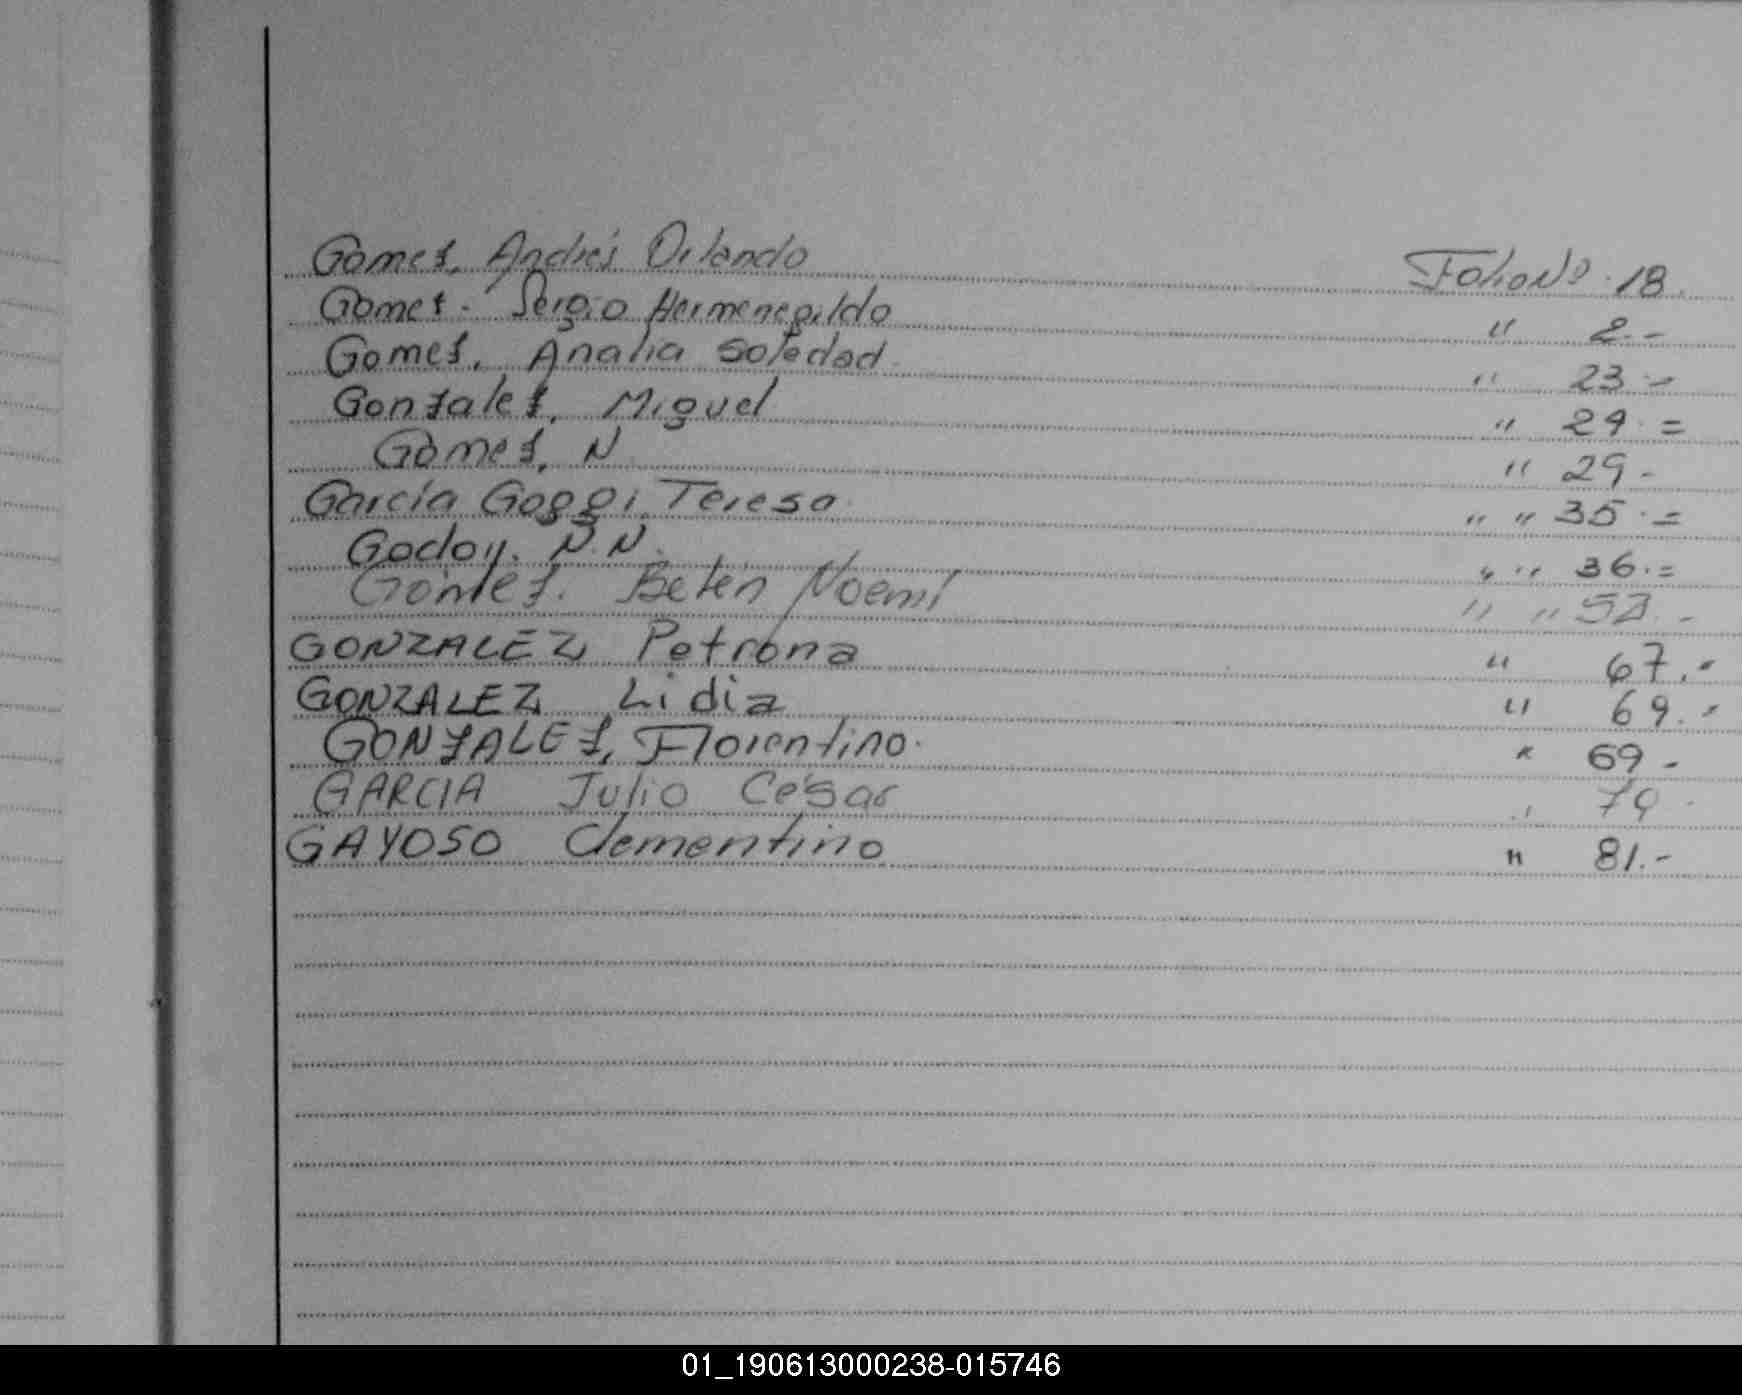 Gomez, Andrés Orlando Folio Nº 18.
Gomez - Sergio Hermenegildo " 2.-
Gomez, Analia Soledad. " 23.-
Gonzalez, Miguel " 29.=
Gomez, N " 29.-
Garcia Goggi, Teresa. " " 35.=
Godoy. N.N. " " 36.=
Gomez. Belén Noemí " " 52.-
GONZALEZ, Petrona " 67.-
GONZALEZ, Lidia " 69.-
GONZALEZ, Florentino. " 69-
GARCIA Julio César " 79.
GAYOSO Clementino " 81.-
01_190613000238-015746